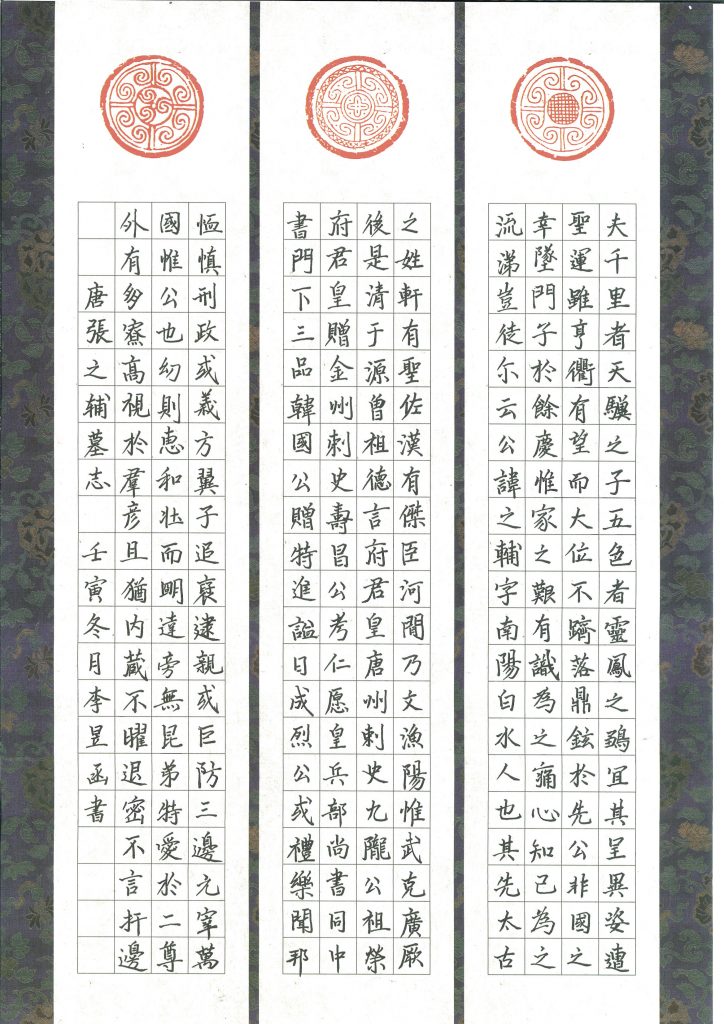 夫千里者天驥之子五色者靈鳳之鵷宜其呈異姿遭
聖運雖亨衢有望而大位不躋落鼎鉉於先公非國之
幸墜門子於餘慶惟家之艱有識為之痛心知己為之
流涕豈徒尔云公諱之輔字南陽白水人也其先太古
之姓軒有聖佐漢有傑臣河間乃文漁陽惟武克廣厥
後是清于源曾祖德言府君皇唐州刺史九隴公祖榮
府君皇贈金州刺史壽昌公考仁愿皇兵部尚書同中
書門下三品韓國公贈特進謚曰成烈公或禮樂聞邦
恤慎刑政或義方翼子追裒逮親或巨防三邊元宰萬
國惟公也幼則惠和壯而明達旁無昆弟特愛於二尊
外有多寮高視於羣彦且猶内蔵不曜退密不言扞邊
唐張之輔墓志 壬寅冬月李昱函書